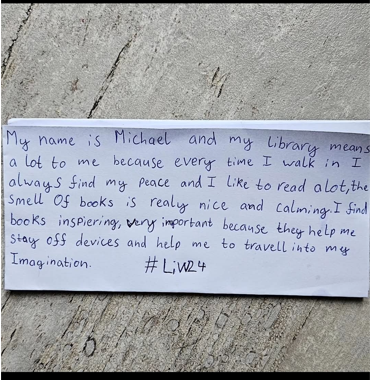 My name is Michael and my library means
a lot to me because every time I walk in I
always find my peace and I like to read alot,the
smell Of books is realy nice and calming.I find
books inspiering, very important because they help me
stay off devices and help me to travell into my
Imagination. #LiW24